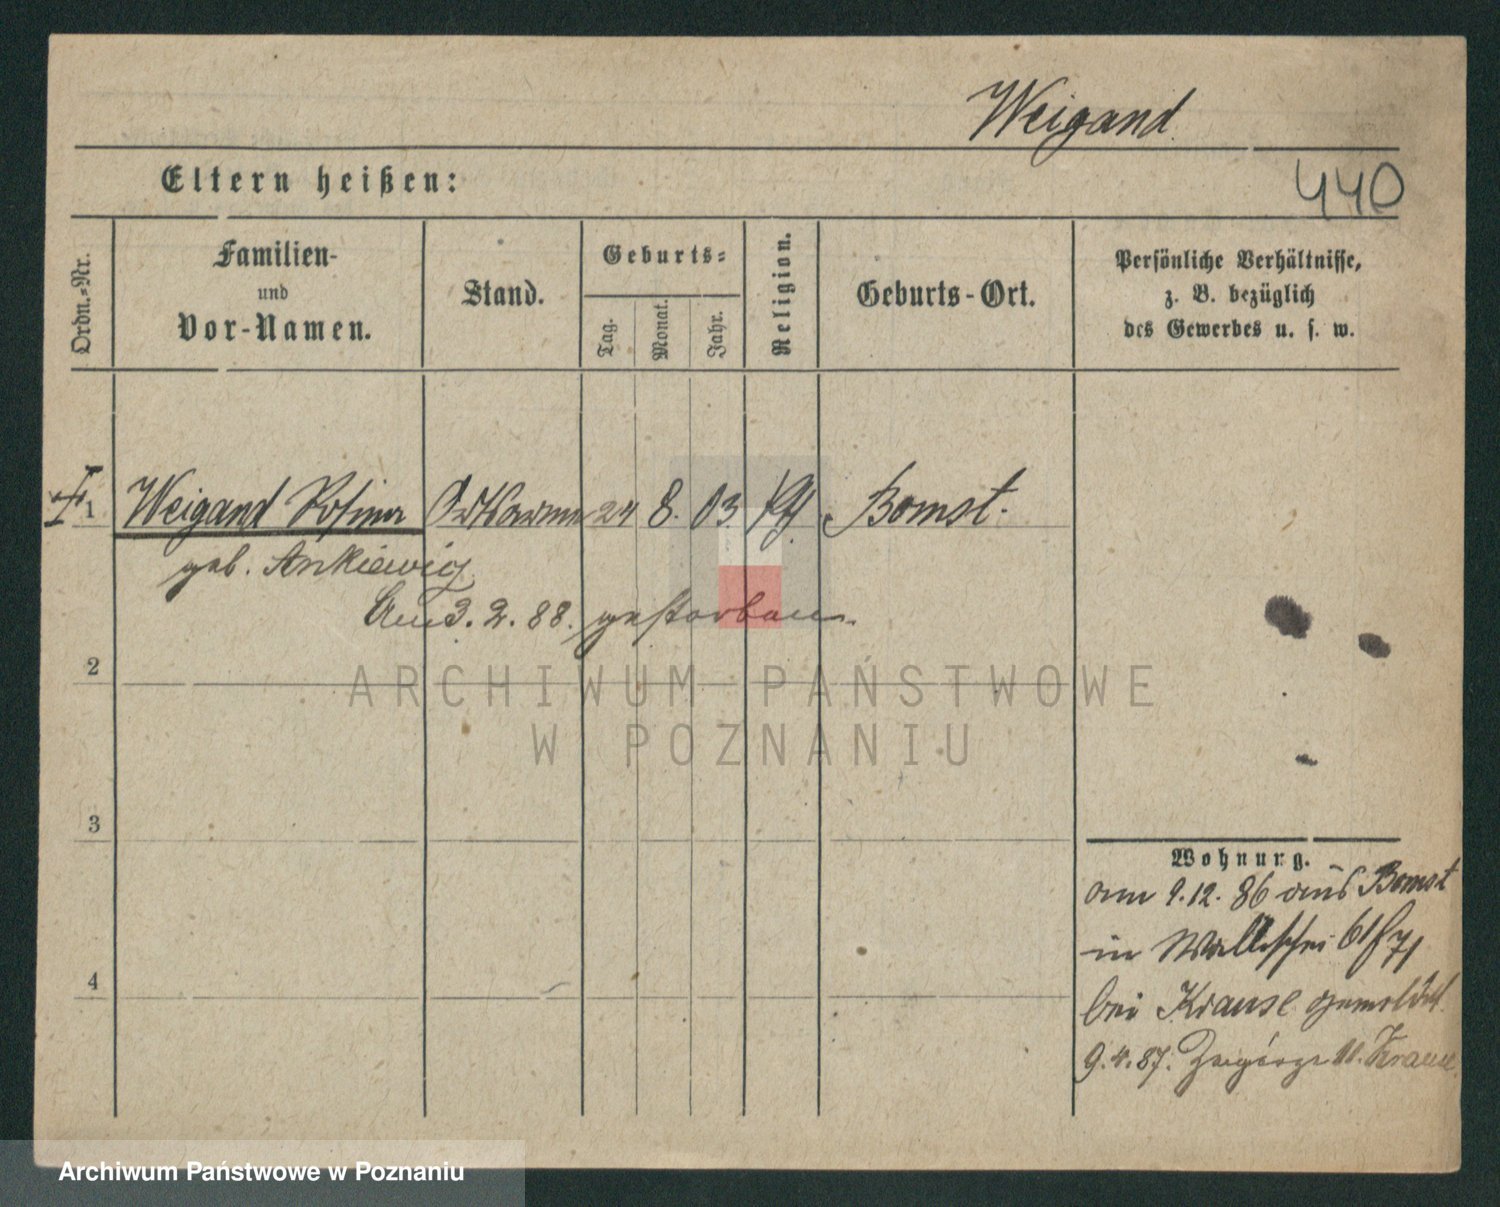 Weigand
440
Eltern heißen:
Ordn.-Nr.
Familien-
und
Vor-Namen.
Stand.
Geburts-
Tag.
Monat.
Jahr.
Religion.
Geburts-Ort.
Persönliche Verhältnisse,
z. B. bezüglich
des Gewerbes u. s. w.
1 Weigand Rosina 24 8. 03. Bomst.
geb. Ankiewicz
Am 3. 2. 88. gestorben.
2
ARCHIWUM PAŃSTWOWE
W POZNANIU
3
4
Wohnung.
am 9.12. 86 aus Bomst
in Wallischei 61/71
bei Krause gemeldet.
9.4.87. Zagórze 11. Krause
Archiwum Państwowe w Poznaniu